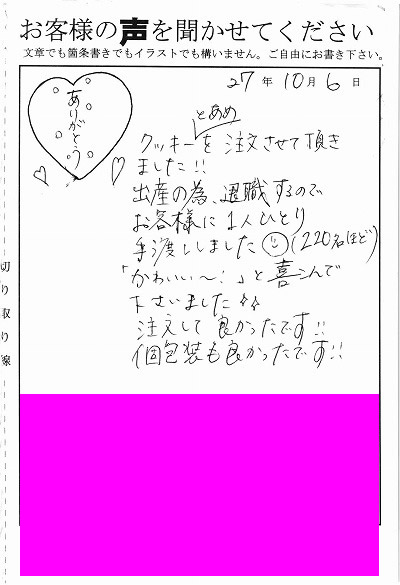 お客様の声を聞かせてください
文章でも箇条書きでもイラストでも構いません。ご自由にお書き下さい。
27年10月6日
ありがとう
とあめ
クッキーを注文させて頂き
ました!!
出産の為、退職するので
お客様に1人ひとり
手渡ししました(220名ほど)
「かわいい〜!」と喜んで
下さいました
注文して良かったです!!
個包装も良かったです!!
切り取り家